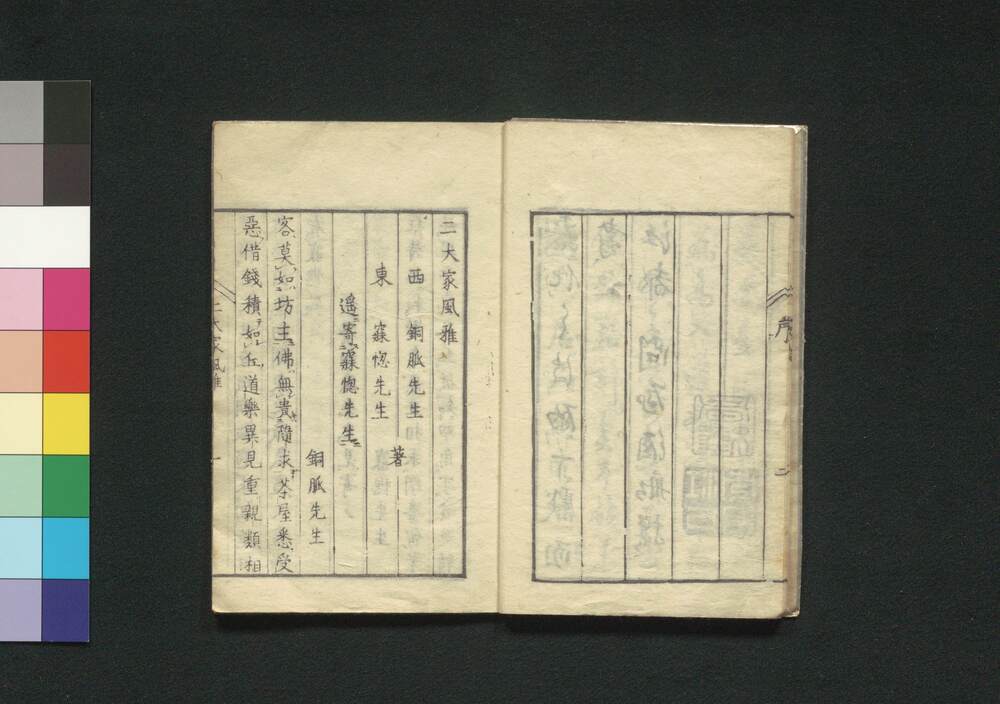 序
二
二大家風雅
西 銅脈先生
東 寐惚先生
著
遥寄寐惚先生
銅脈先生
客莫如坊主佛無貴隨求茶屋悉受
惡借錢積如丘道樂異見重親類相
二大家風雅
一